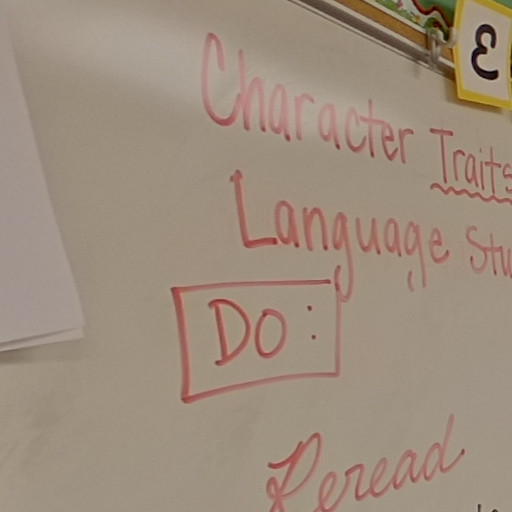 3
Character Traits
Language
DO:
Reread